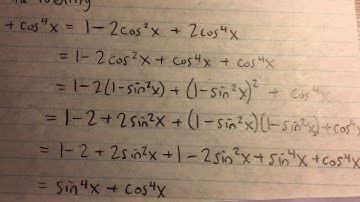 identity
+ cos⁴x = 1 - 2cos²x + 2cos⁴x
= 1 - 2cos²x + cos⁴x + cos⁴x
= 1 - 2(1 - sin²x) + (1 - sin²x)² + cos⁴x
= 1 - 2 + 2sin²x + (1 - sin²x)(1 - sin²x) + cos⁴x
= 1 - 2 + 2sin²x + 1 - 2sin²x + sin⁴x + cos⁴x
= sin⁴x + cos⁴x